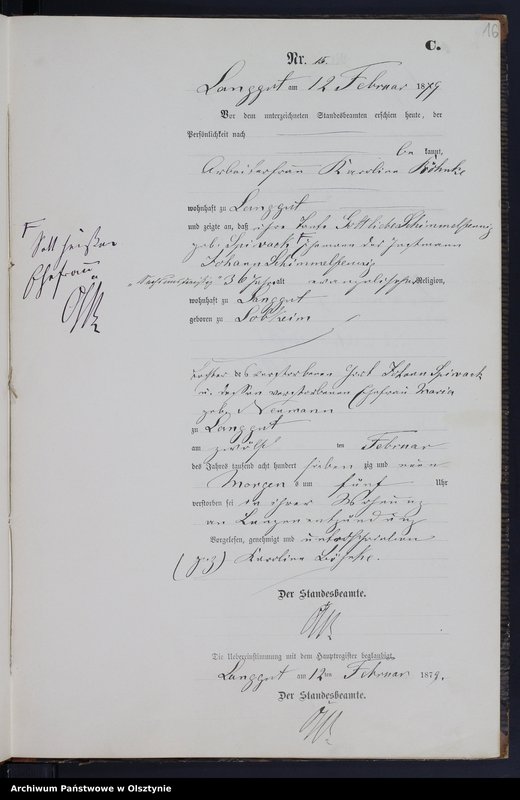 16
C.
Nr. 15.
Langgut am 12 Februar 1879
Vor dem unterzeichneten Standesbeamten erschien heute, der
Persönlichkeit nach
be kannt,
Arbeiterfrau Karoline Böhnke
wohnhaft zu Langgut
und zeigte an, daß ihre Tante Gottliebe Schimmelpfennig
geb. Spiwack Ehemann des Instmann
Johann Schimmelpfennig
36 Jahre alt evangelischer Religion,
wohnhaft zu Langgut
geboren zu
Soll heißen
Ehefrau
Tochter des verstorbenen Hirt Johann Spiwack
u. dessen verstorbenen Ehefrau Maria
geb. Neumann
zu Langgut
am zwölften Februar
des Jahres tausend acht hundert sieben zig und neun
Morgens um fünf Uhr
verstorben sei in ihrer Wohnung
an Lungenentzündung
Vorgelesen, genehmigt und unterschrieben
(gez) Karoline Böhnke.
Der Standesbeamte.
Die Uebereinstimmung mit dem Hauptregister beglaubigt.
Langgut am 12ten Februar 1879.
Der Standesbeamte.
Archiwum Państwowe w Olsztynie